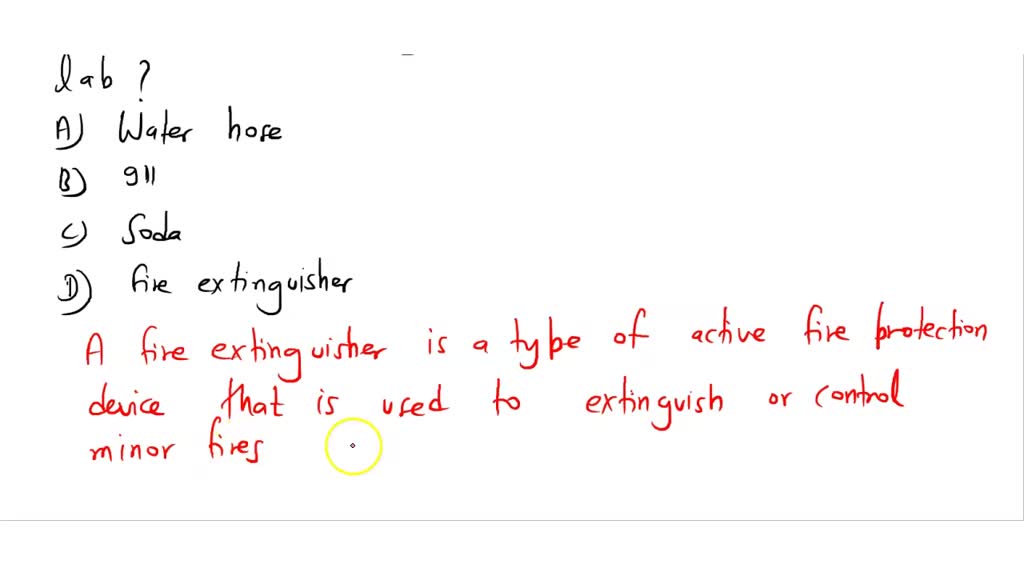 lab ?
A) Water hose
B) 911
C) Soda
D) fire extinguisher
A fire extinguisher is a type of active fire protection
device that is used to extinguish or control
minor fires